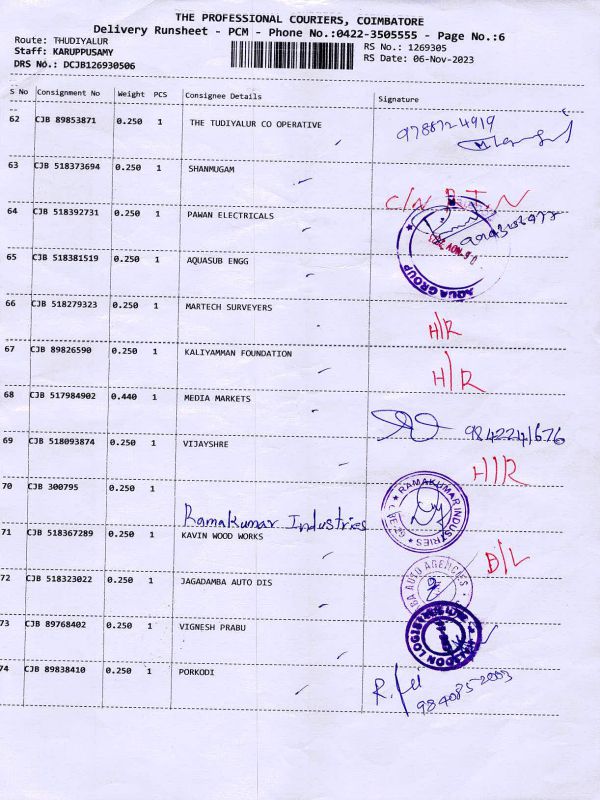 THE PROFESSIONAL COURIERS, COIMBATORE
Delivery Runsheet - PCM - Phone No.:0422-3505555 - Page No.:6
Route: THUDIYALUR
Staff: KARUPPUSAMY
DRS No.: DCJB126930506
RS No.: 1269305
RS Date: 06-Nov-2023
S No Consignment No Weight PCS Consignee Details Signature
62 CJB 89853871 0.250 1 THE TUDIYALUR CO OPERATIVE 9788724919
63 CJB 518373694 0.250 1 SHANMUGAM C/N R.T.N
64 CJB 518392731 0.250 1 PAWAN ELECTRICALS
65 CJB 518381519 0.250 1 AQUASUB ENGG AQUA GROUP
66 CJB 518279323 0.250 1 MARTECH SURVEYERS H/R
67 CJB 89826590 0.250 1 KALIYAMMAN FOUNDATION H/R
68 CJB 517984902 0.440 1 MEDIA MARKETS 9842241676
69 CJB 518093874 0.250 1 VIJAYSHRE H/R
70 CJB 300795 0.250 1 Ramakumar Industries RAMAKUMAR INDUSTRIES
71 CJB 518367289 0.250 1 KAVIN WOOD WORKS D/L
72 CJB 518323022 0.250 1 JAGADAMBA AUTO DIS BA AUTO AGENCIES
73 CJB 89768402 0.250 1 VIGNESH PRABU
74 CJB 89838410 0.250 1 PORKODI 9840852003